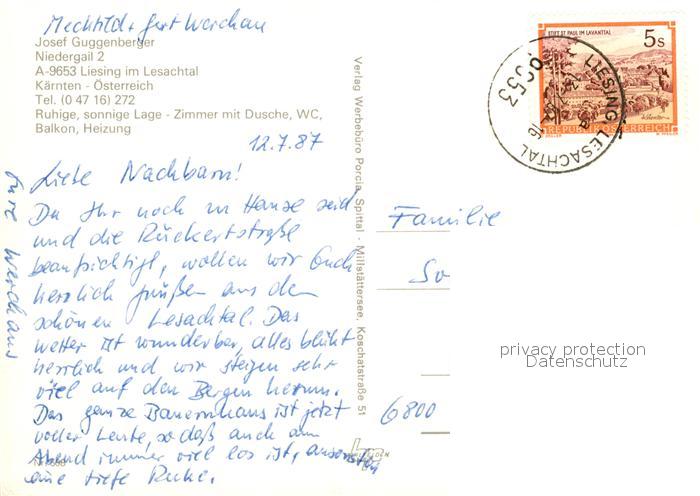 Mechtild + Gert Werchau
Josef Guggenberger
Niedergail 2
A-9653 Liesing im Lesachtal
Kärnten - Österreich
Tel. (0 47 16) 272
Ruhige, sonnige Lage - Zimmer mit Dusche, WC,
Balkon, Heizung
12.7.87
Liebe Nachbarn!
Da Ihr noch zu Hause seid
und die Rückertstraße
beaufsichtigt, wollen wir Euch
herzlich grüßen aus dem
schönen Lesachtal. Das
Wetter ist wunderbar, alles blüht
herrlich und wir steigen sehr
viel auf den Bergen herum.
Das ganze Bauernhaus ist jetzt
voller Leute, so daß auch am
Abend immer viel los ist, ansonsten
eine tiefe Ruhe.
Eure Werchaus
Verlag Werbebüro Porcia, Spittal - Millstättersee, Koschatstraße 51
STIFT ST. PAUL IM LAVANTTAL
5s
REPUBLIK ÖSTERREICH
LIESING, LESACHTAL
9653
Familie
So
6800
privacy protection
Datenschutz